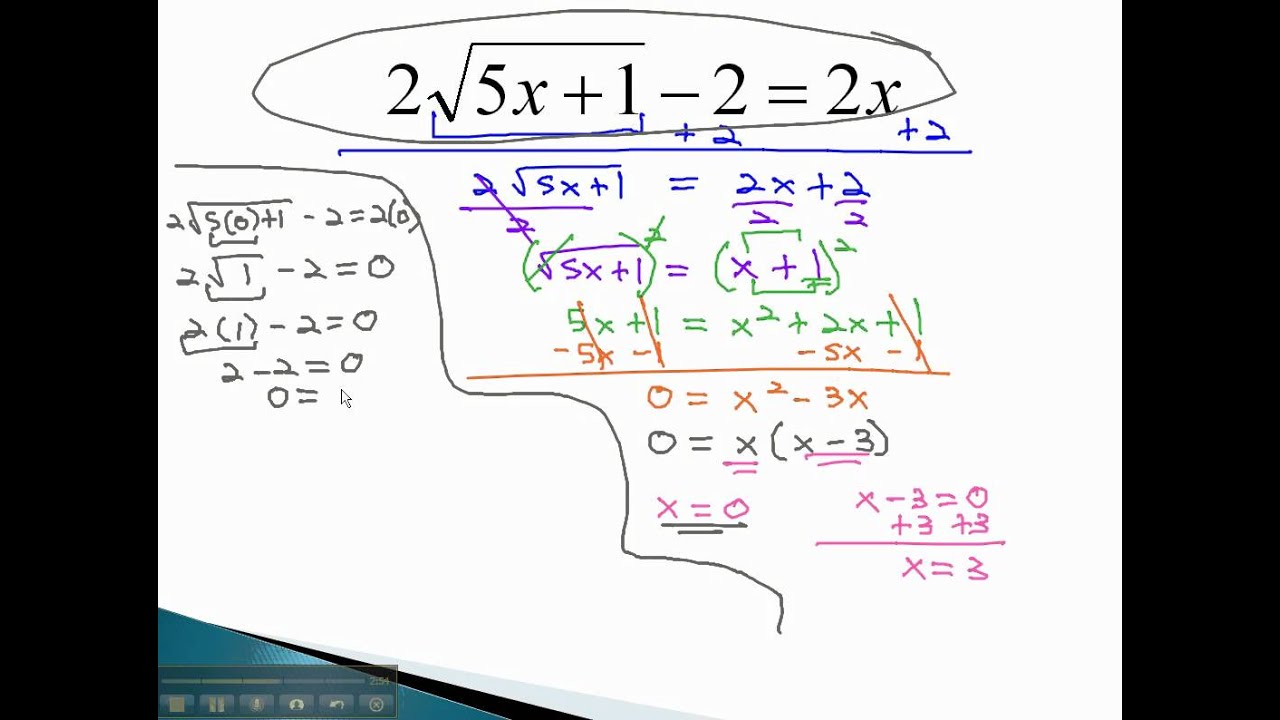 2√(5x+1) − 2 = 2x
+ 2 + 2
2√(5x+1) = 2x + 2
2 2 2
(√(5x+1))² = (x + 1)²
5x + 1 = x² + 2x + 1
−5x −1 −5x −1
0 = x² − 3x
0 = x(x − 3)
x = 0
x − 3 = 0
+3 +3
x = 3
2√(5(0)+1) − 2 = 2(0)
2√1 − 2 = 0
2(1) − 2 = 0
2 − 2 = 0
0 =
2:54